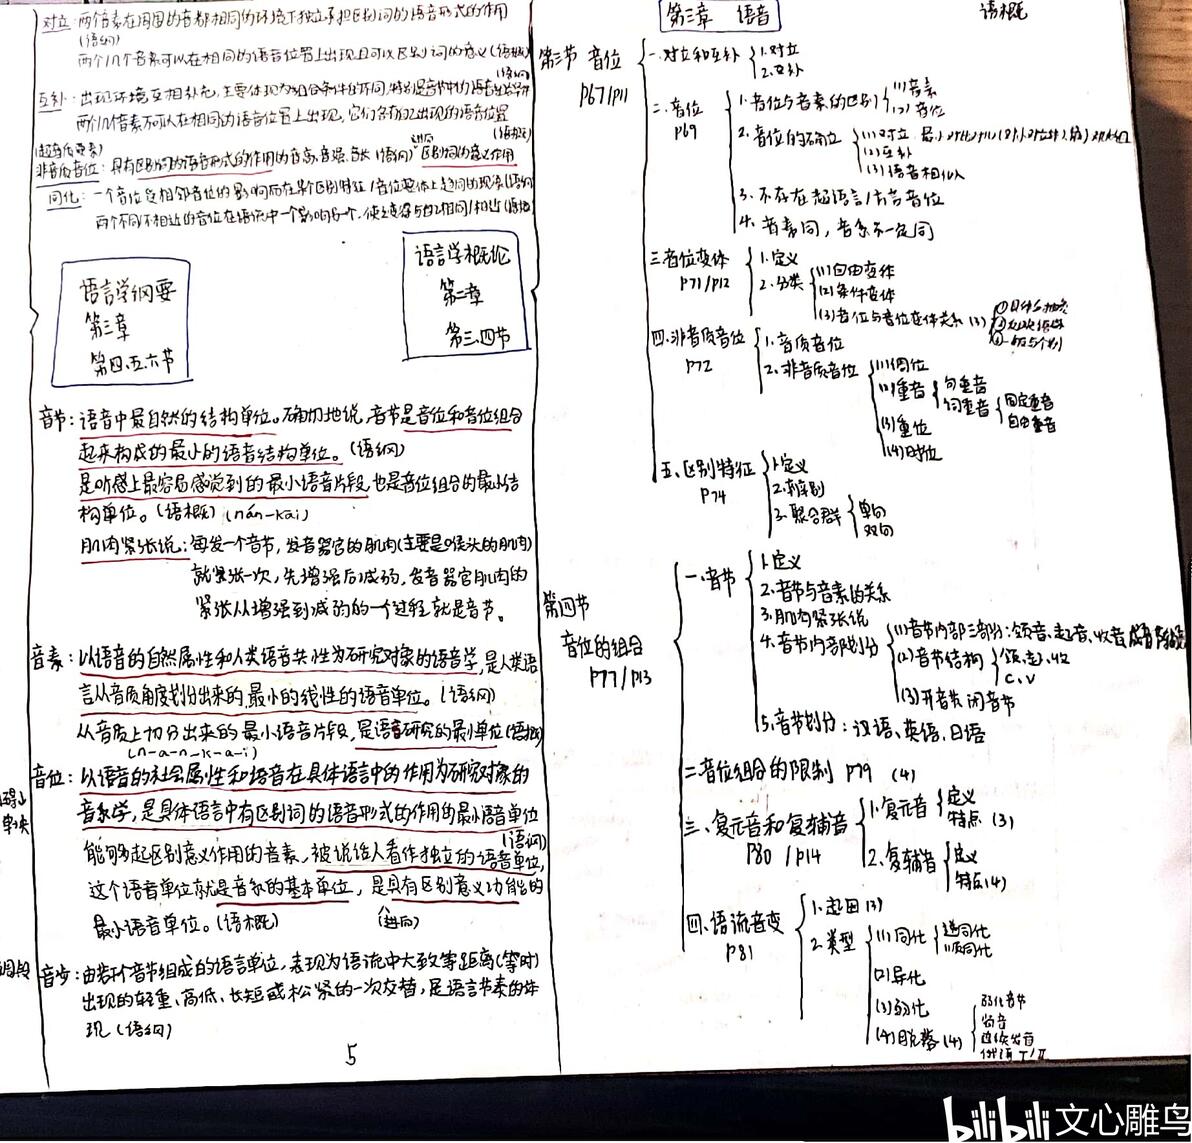 对立:两个音素在周围的音都相同的环境下独立承担区别词的语音形式的作用
(语纲)
两个/几个音素可以在相同的语音位置上出现且可以区别词的意义(语概)
(语纲)
互补:出现环境互相补充,主要体现为组合条件的不同,特别是音节中的语音
两个/几个音素不可以在相同的语音位置上出现,它们各有自己出现的语音位置
(语概)
(超音质要素)
进向
非音质音位:具有区别词的语音形式的作用的音高、音强、音长(语纲)区别词的意义作用
同化:一个音位受相邻音位的影响而在某个区别特征/音位整体上趋同的现象(语纲)
两个不同/不相近的音位在语流中一个影响另一个,使之变得与自己相同/相近(语概)
语言学纲要
第三章
第四、五、六节
语言学概论
第三章
第三、四节
音节:语音中最自然的结构单位。确切地说,音节是音位和音位组合
起来构成的最小的语音结构单位。(语纲)
是听感上最容易感觉到的最小语音片段,也是音位组合的最小结
构单位。(语概)(nán-kāi)
肌肉紧张说:每发一个音节,发音器官的肌肉(主要是喉头的肌肉)
就紧张一次,先增强后减弱,发音器官肌肉的
紧张从增强到减弱的一个过程,就是音节。
音素:以语音的自然属性和人类语音共性为研究对象的语音学,是人类语
言从音质角度划分出来的,最小的线性的语音单位。(语纲)
从音质上切分出来的最小语音片段,是语音研究的最小单位(语概)
(n-a-n-k-a-i)
音位:以语音的社会属性和语音在具体语言中的作用为研究对象的
音系学,是具体语言中有区别词的语音形式的作用的最小语音单位
(语纲)
能够起区别意义作用的音素,被说话人看作独立的语音单位,
这个语音单位就是音系的基本单位,是具有区别意义功能的
最小语音单位。(语概)
(进向)
音步:由若干个音节组成的语言单位,表现为语流中大致等距离(等时)
出现的轻重、高低、长短或松紧的一次交替,是语言节奏的体
现(语纲)
5
第三章 语音
语概
第三节 音位
P67/P11
一.对立和互补
1.对立
2.互补
二.音位
P69
1.音位与音素的区别
(1)音素
(2)音位
2.音位的确立
(1)对立
(2)互补
(3)语音相似
3.不存在超语言/方言音位
4.音素同,音系不一定同
三音位变体
P71/P12
1.定义
2.分类
(1)自由变体
(2)条件变体
(3)音位与音位变体关系(3)
四.非音质音位
P72
1.音质音位
2.非音质音位
(1)调位
(2)重音
句重音
词重音
固定重音
自由重音
(3)重位
(4)时位
五、区别特征
P74
1.定义
2.辨别
3.聚合群
单向
双向
第四节
音位的组合
P77/P13
一.音节
1.定义
2.音节与音素的关系
3.肌肉紧张说
4.音节内部划分
(1)音节内部三部分:领音、起音、收音
(2)音节结构
领、起、收
C、V
(3)开音节 闭音节
5.音节划分:汉语、英语、日语
二音位组合的限制 P79 (4)
三、复元音和复辅音
P80/P14
1.复元音
定义
特点(3)
2.复辅音
定义
特点(4)
四、语流音变
P81
1.起因(3)
2.类型
(1)同化
逆同化
顺同化
(2)异化
(3)弱化
(4)脱落(4)
弱化音节
bilibili 文心雕鸟